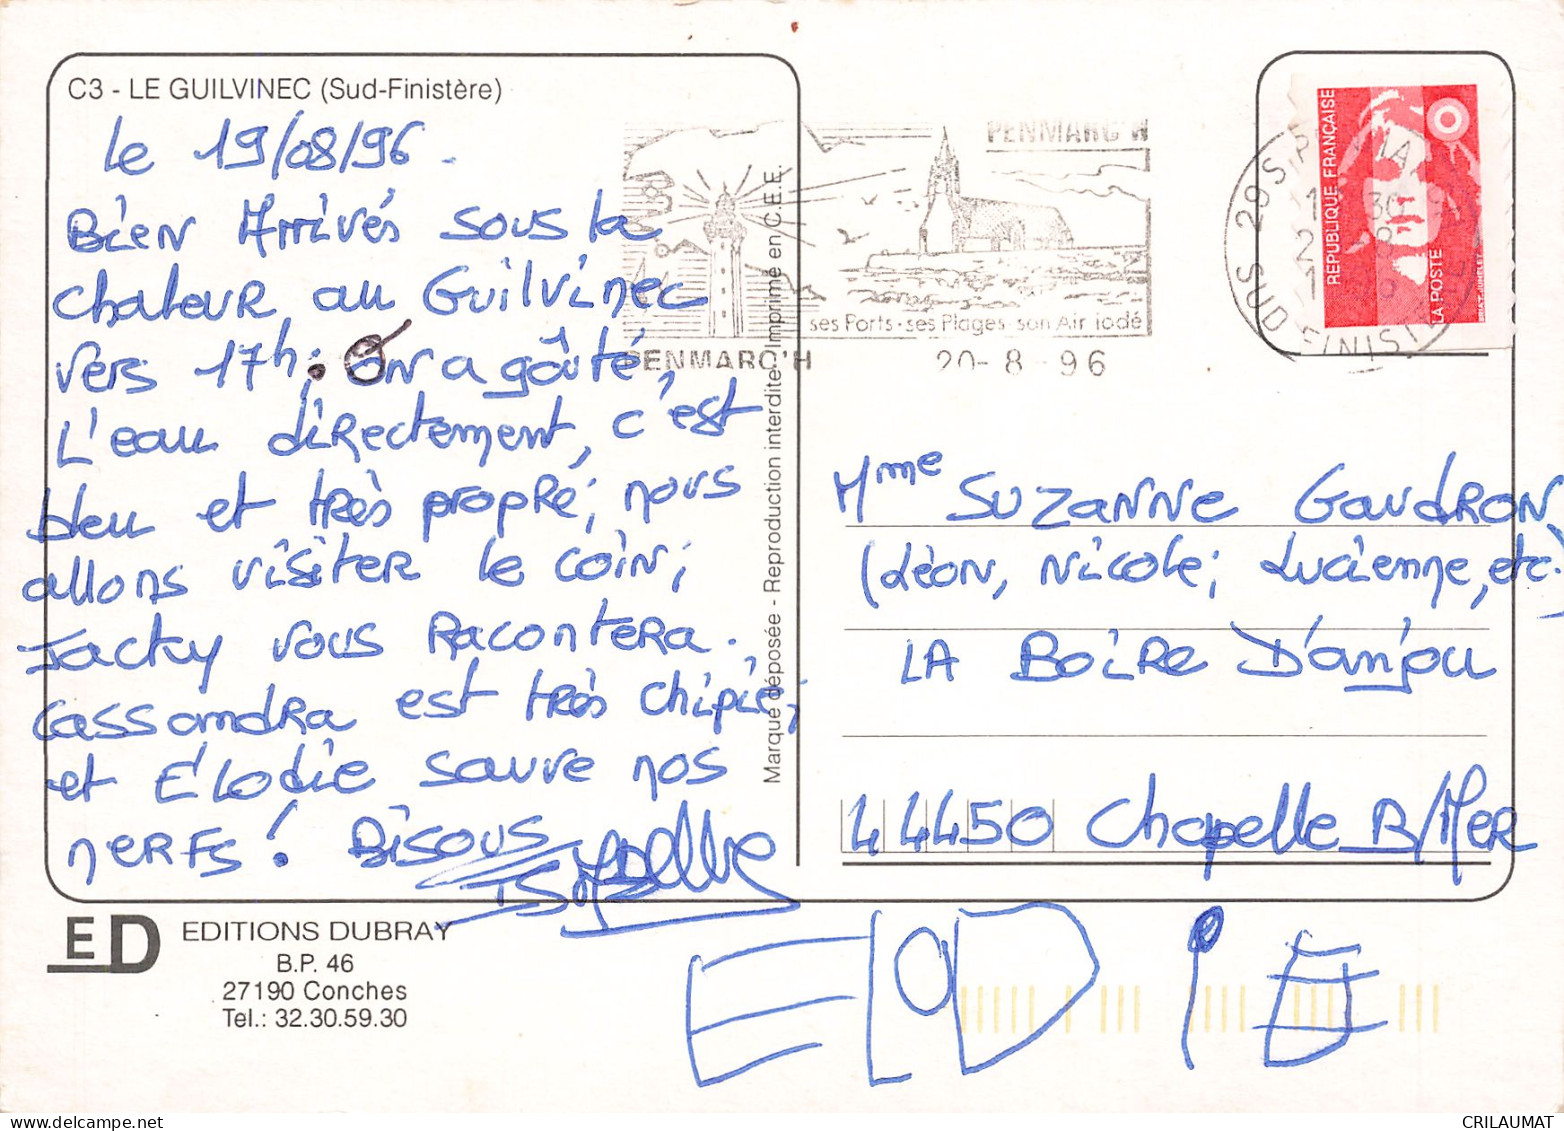 C3 - LE GUILVINEC (Sud-Finistère)
le 19/08/96.
Bien Arrivés sous la
chaleur au Guilvinec
vers 17h; on a goûté,
L'eau directement, c'est
bleu et très propre; nous
allons visiter le coin;
Jacky vous racontera.
Cassandra est très chipie,
et Élodie sauve nos
nerfs! Bisous
Isabelle
EDITIONS DUBRAY
ED
B.P. 46
27190 Conches
Tel.: 32.30.59.30
Marque déposée - Reproduction interdite - Imprimé en C.E.E.
PENMARC'H
ses Ports - ses Plages - son Air iodé
PENMARC'H
20-8-96
29 SUD FINISTERE
REPUBLIQUE FRANÇAISE
LA POSTE
Mme Suzanne Gaudron
(Léon, Nicole; Lucienne, etc.)
LA Boire D'anjou
44450 Chapelle B/Mer
ELODIE
CRILAUMAT